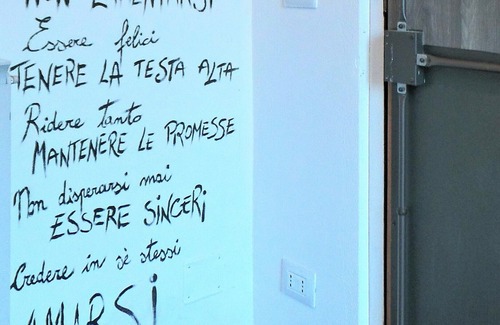 Essere felici
TENERE LA TESTA ALTA
Ridere tanto
MANTENERE LE PROMESSE
Non disperarsi mai
ESSERE SINCERI
Credere in sè stessi
AMARSI